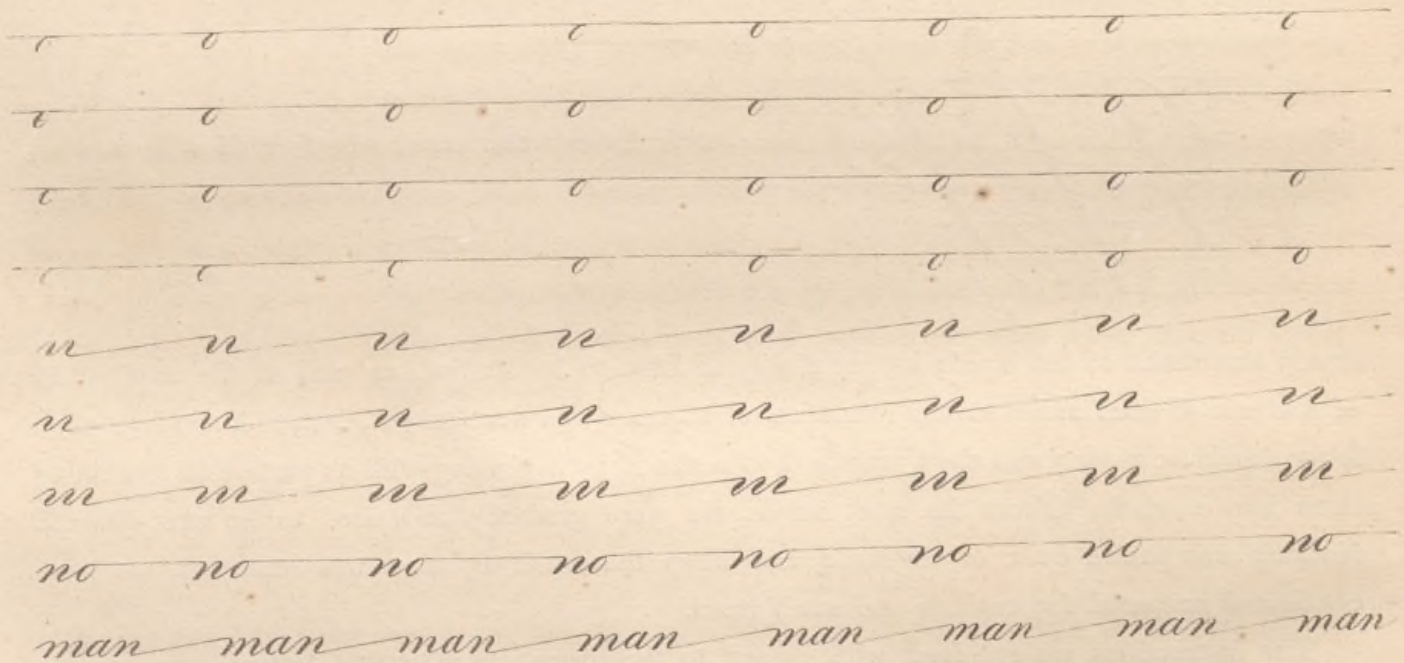 o o o o o o o o
o o o o o o o o
o o o o o o o o
o o o o o o o o
n n n n n n n n
n n n n n n n n
m m m m m m m m
no no no no no no no no
man man man man man man man man